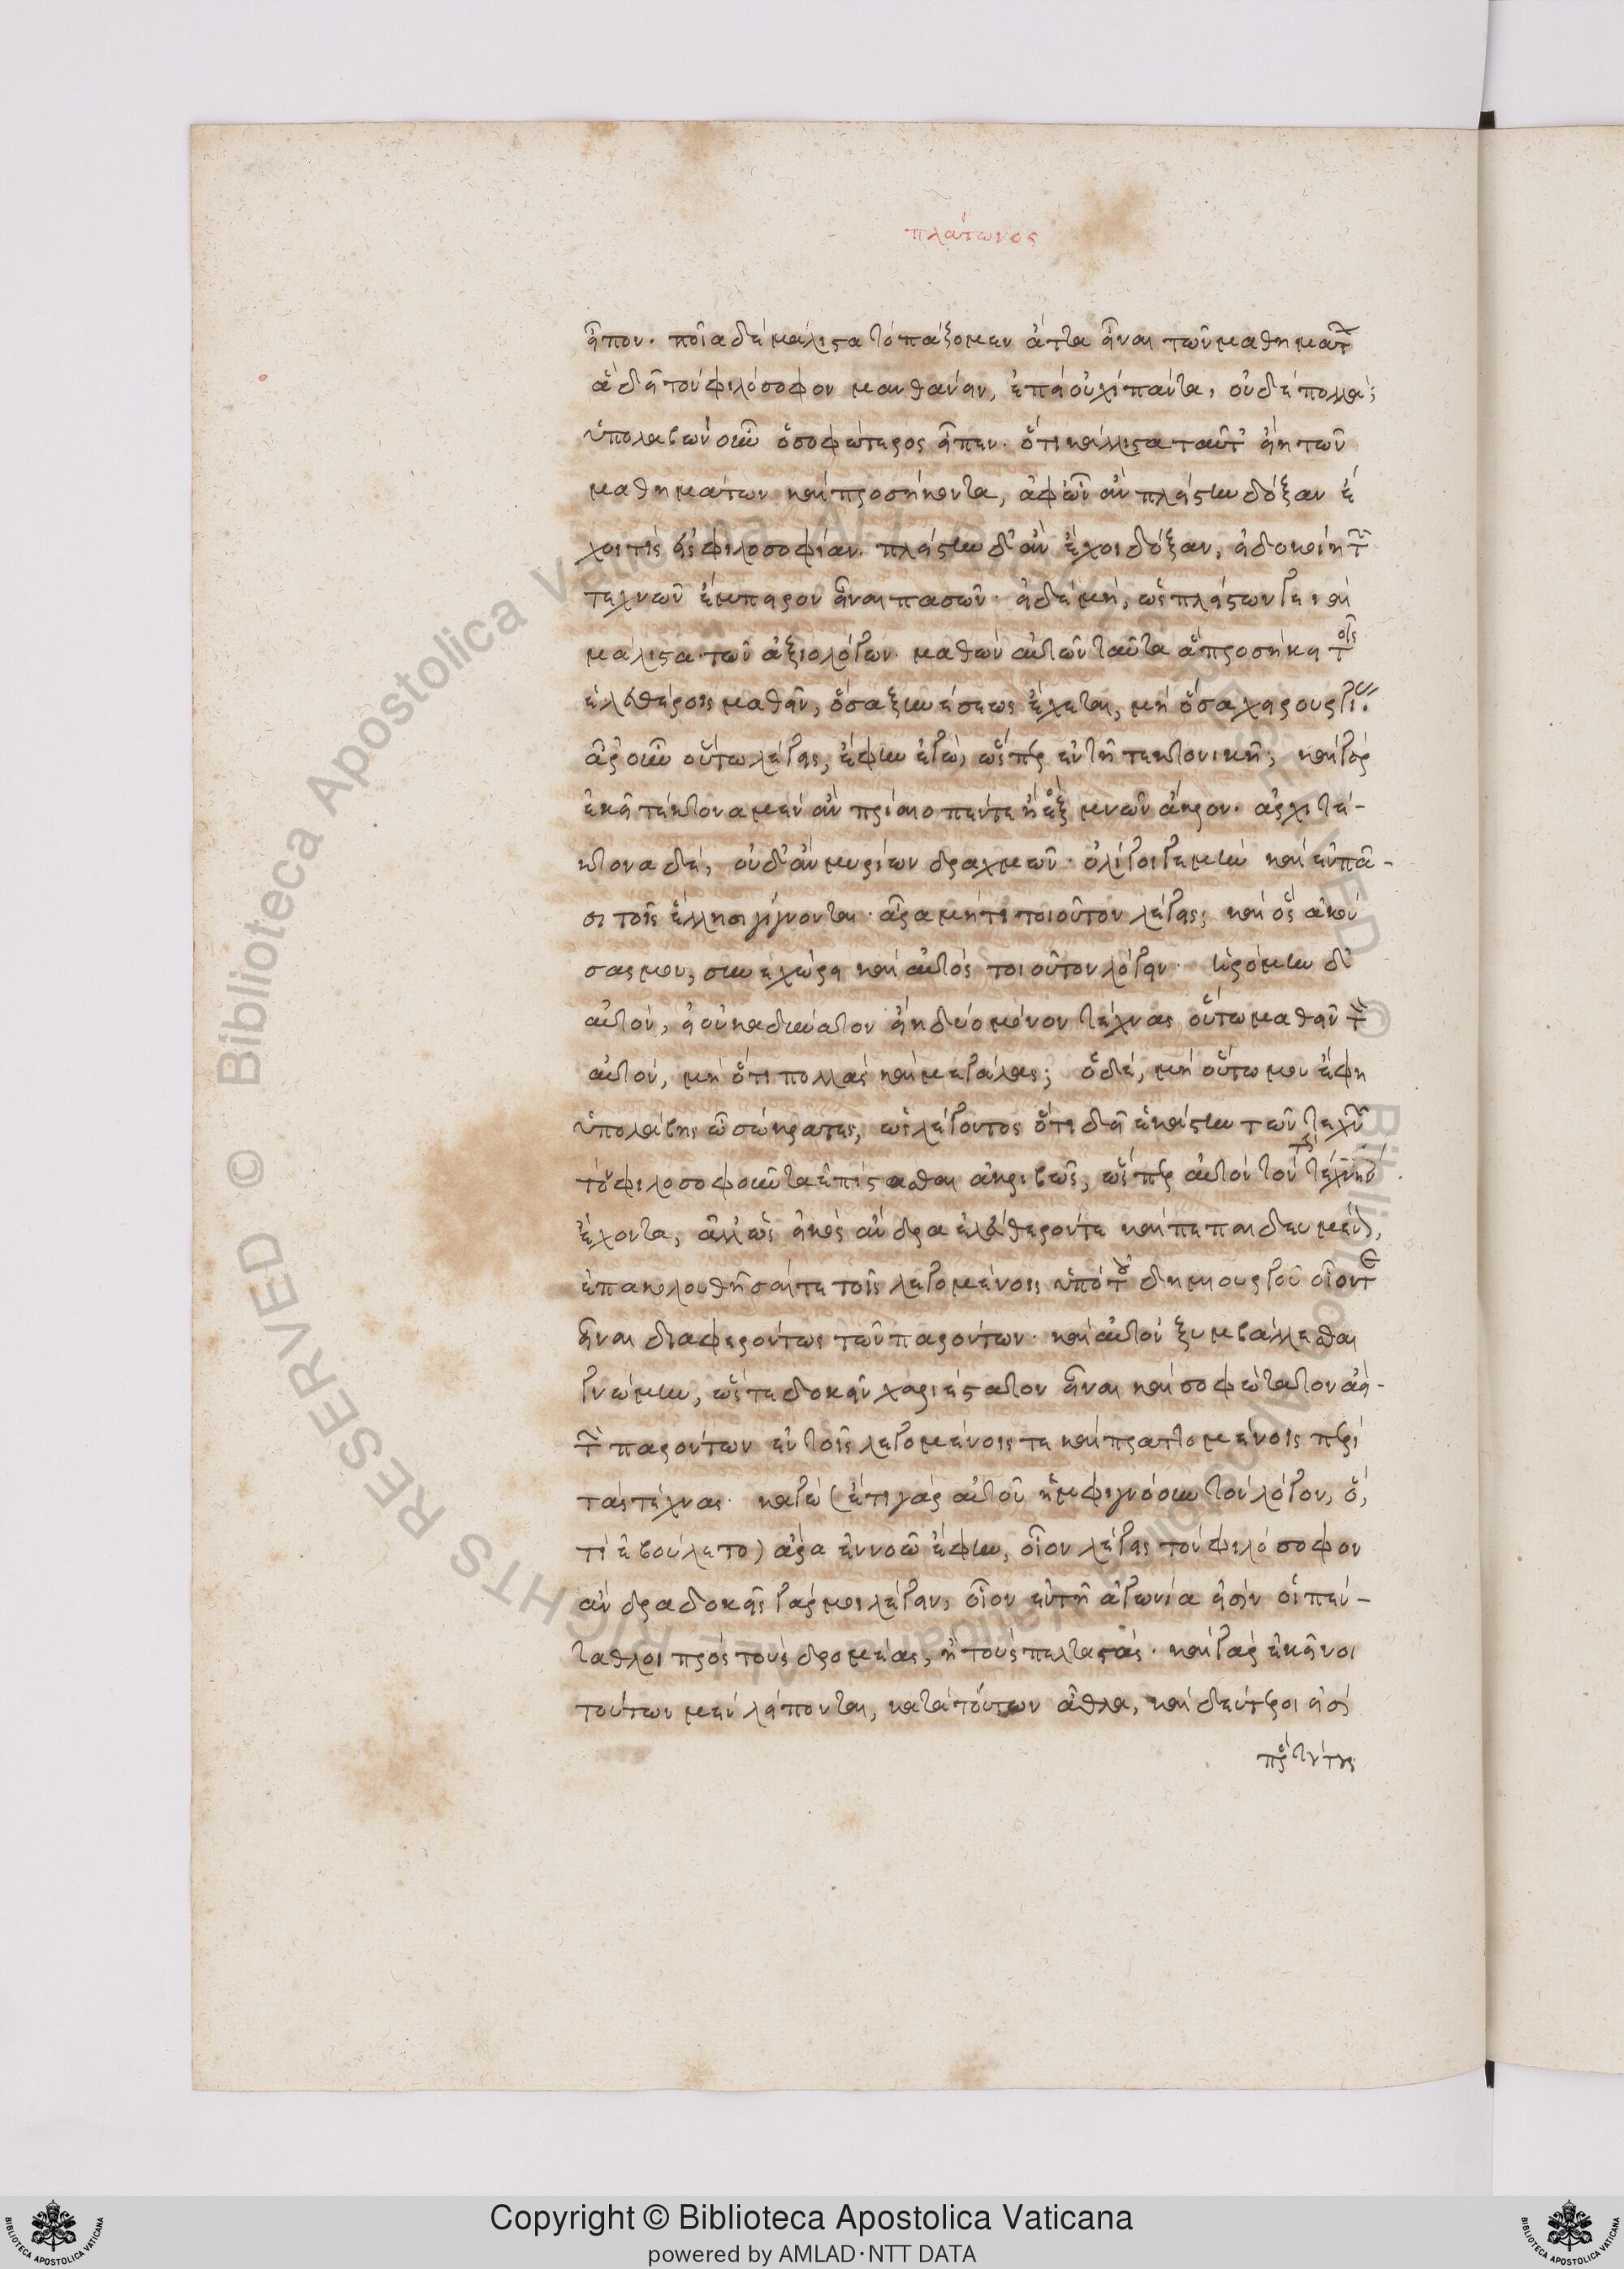 πλάτωνος
εἶπον· ποῖα δὲ μάλιστα τοπάζομεν ἄττα εἶναι τῶν μαθημάτ
ἃ δεῖ τὸν φιλόσοφον μανθάνειν, ἐπεὶ οὐχὶ πάντα, οὐδὲ πολλά;
ὑπολαβὼν οὖν ὁ σοφώτερος εἶπεν· ὅτι κάλλιστα ταῦτ' εἴη τῶν
μαθημάτων καὶ προσήκοντα, ἀφ' ὧν ἂν πλείστην δόξαν ἔ
χοι τίς εἰς φιλοσοφίαν. πλείστην δ' ἂν ἔχοι δόξαν, εἰ δοκοίη τ̃
τεχνῶν ἔμπειρος εἶναι πασῶν· εἰ δὲ μή, ὡς πλείστων γε καὶ
μάλιστα τῶν ἀξιολόγων· μαθὼν αὐτῶν ταῦτα ἃ προσήκει τοῖς
ἐλευθέροις μαθεῖν, ὅσα ξυνέσεως ἔχεται, μὴ ὅσα χειρουργι.
ἆρ' οὖν οὕτω λέγεις, ἔφην ἐγώ, ὥσπερ ἐν τῇ τεκτονικῇ; καὶ γὰρ
ἐκεῖ τέκτονα μὲν ἂν πρίαιο πέντε ἢ ἓξ μνῶν ἄκρον· ἀρχιτέ-
κτονα δέ, οὐδ' ἂν μυρίων δραχμῶν· ὀλίγοι γε μὴν καὶ ἐν πᾶ-
σι τοῖς ἕλλησι γίγνονται· ἆρα μή τι τοιοῦτον λέγεις; καὶ ὃς ἀκού
σας μου, συνεχώρει καὶ αὐτὸς τοιοῦτον λέγειν· ἠρόμην δ'
αὐτόν, εἰ οὐκ ἀδύνατον εἴη δύο μόνον τέχνας οὕτω μαθεῖν τ
αὐτόν, μὴ ὅτι πολλὰς καὶ μεγάλας; ὁ δέ, μὴ οὕτω μου ἔφη
ὑπολάβῃς ὦ σώκρατες, ὡς λέγοντος ὅτι δεῖ ἑκάστην τῶν τεχν
τὸν φιλοσοφοῦντα ἐπίστασθαι ἀκριβῶς, ὥσπερ αὐτὸν τὸν τὴν τέχνην
ἔχοντα, ἀλλ' ὡς εἰκὸς ἄνδρα ἐλεύθερόν τε καὶ πεπαιδευμέν,
ἐπακολουθῆσαί τε τοῖς λεγομένοις ὑπὸ τοῦ δημιουργοῦ οἷόντε
εἶναι διαφερόντως τῶν παρόντων· καὶ αὐτὸν ξυμβάλλεσθαι
γνώμην, ὥστε δοκεῖν χαριέστατον εἶναι καὶ σοφώτατον ἀεὶ
τ̃ παρόντων ἐν τοῖς λεγομένοις τε καὶ πραττομένοις περὶ
τὰς τέχνας· κἀγὼ (ἔτι γὰρ αὐτοῦ ἠμφιγνόουν τὸν λόγον, ὅ,
τι ἐβούλετο) ἆρα ἐννοῶ ἔφην, οἷον λέγεις τὸν φιλόσοφον
ἄνδρα δοκεῖς γάρ μοι λέγειν, οἷον ἐν τῇ ἀγωνίᾳ εἰσὶν οἱ πέν-
ταθλοι πρὸς τοὺς δρομέας, ἢ τοὺς παλταστάς· καὶ γὰρ ἐκεῖνοι
τούτων μὲν λείπονται, κατὰ τούτων ἆθλα, καὶ δεύτεροι εἰσὶ
πρὸς τούτους